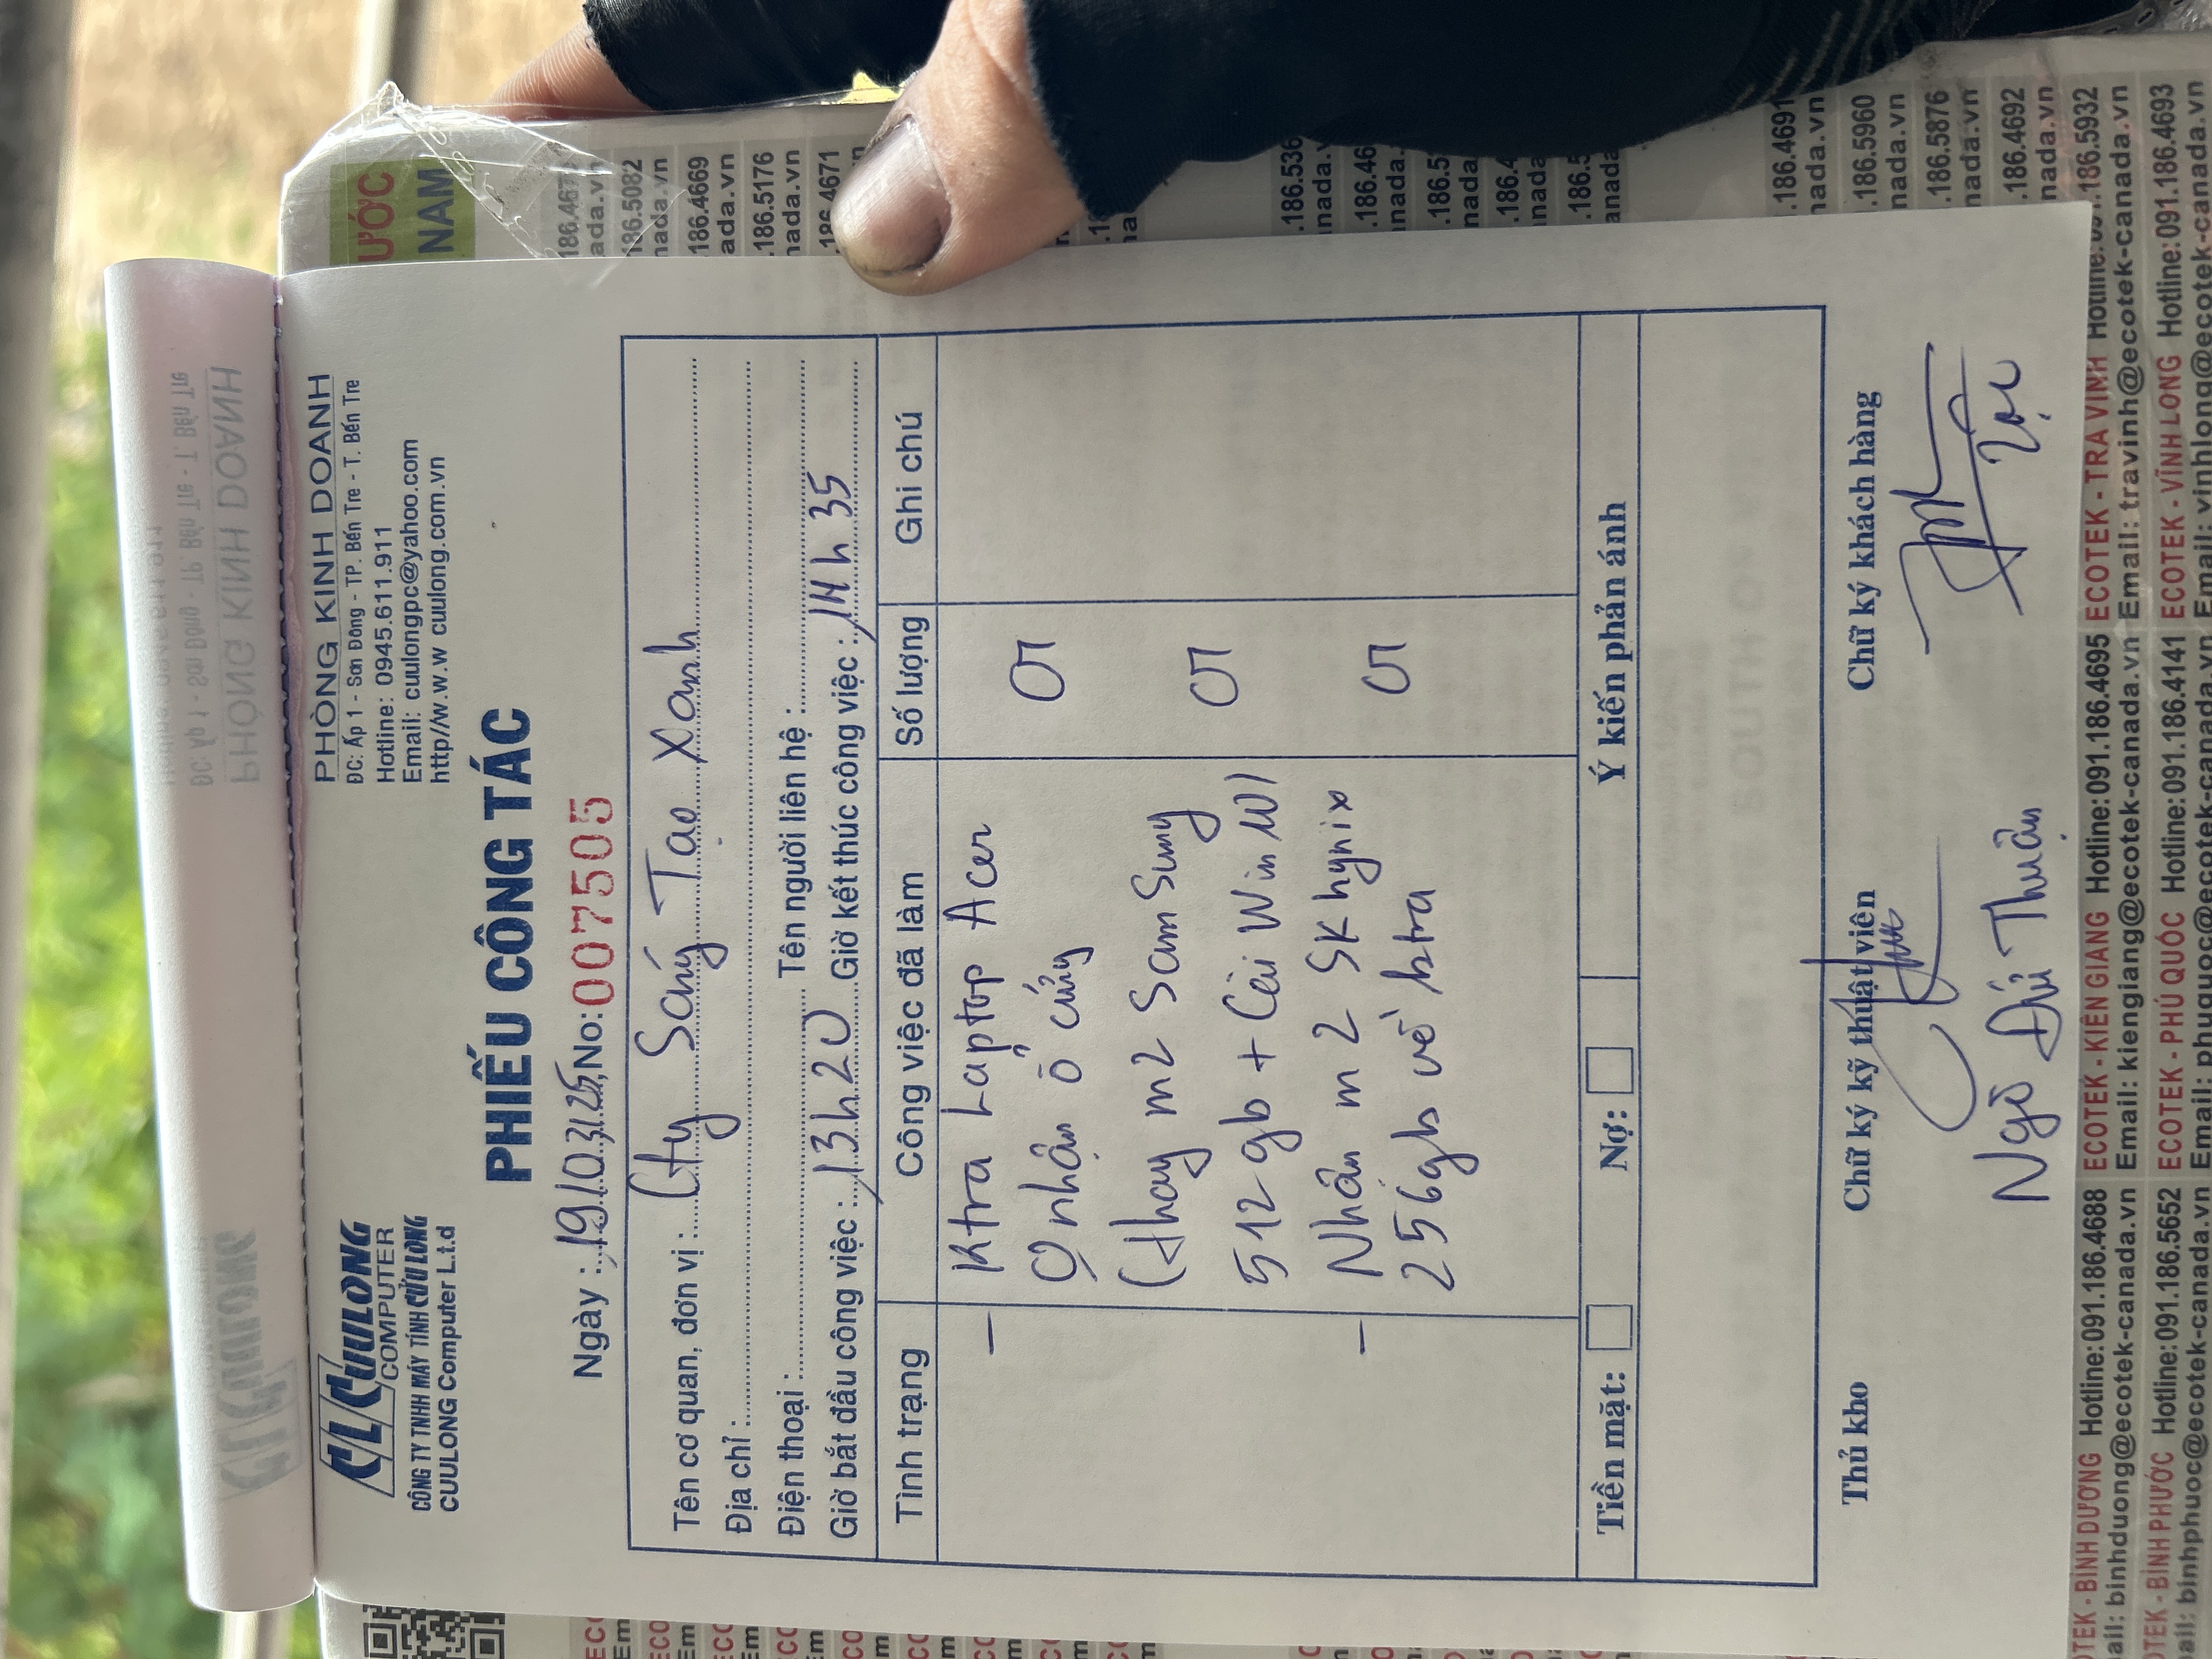 CL CUULONG
COMPUTER
CÔNG TY TNHH MÁY TÍNH CỬU LONG
CUULONG Computer L.t.d
PHÒNG KINH DOANH
ĐC: Ấp 1 - Sơn Đông - TP. Bến Tre - T. Bến Tre
Hotline: 0945.611.911
Email: cuulongpc@yahoo.com
http//w.w.w cuulong.com.vn
PHIẾU CÔNG TÁC
Ngày : 19/03/25, No: 007505
Tên cơ quan, đơn vị : Cty Sáng Tạo Xanh
Địa chỉ :
Điện thoại : Tên người liên hệ :
Giờ bắt đầu công việc : 13h20 Giờ kết thúc công việc : 14h35
Tình trạng Công việc đã làm Số lượng Ghi chú
- Ktra Laptop Acer
0 nhận ổ cứng 01
(thay m2 SamSung
512gb + Cài Win 10) 01
- Nhận m2 SK hynix
256gb về ktra 01
Tiền mặt: Nợ: Ý kiến phản ánh
Thủ kho Chữ ký kỹ thuật viên Chữ ký khách hàng
Ngô Đức Thuận Lộc
ƯỚC
NAM
ECOTEK - BÌNH DƯƠNG Hotline:091.186.4688 ECOTEK - KIÊN GIANG Hotline:091.186.4695 ECOTEK - TRÀ VINH
Email: binhduong@ecotek-canada.vn Email: kiengiang@ecotek-canada.vn Email: travinh@ecotek-canada.vn
ECOTEK - BÌNH PHƯỚC Hotline:091.186.5652 ECOTEK - PHÚ QUỐC Hotline:091.186.4141 ECOTEK - VĨNH LONG Hotline:091.186.4693
Email: binhphuoc@ecotek-canada.vn Email: phuquoc@ecotek-canada.vn Email: vinhlong@ecotek-canada.vn